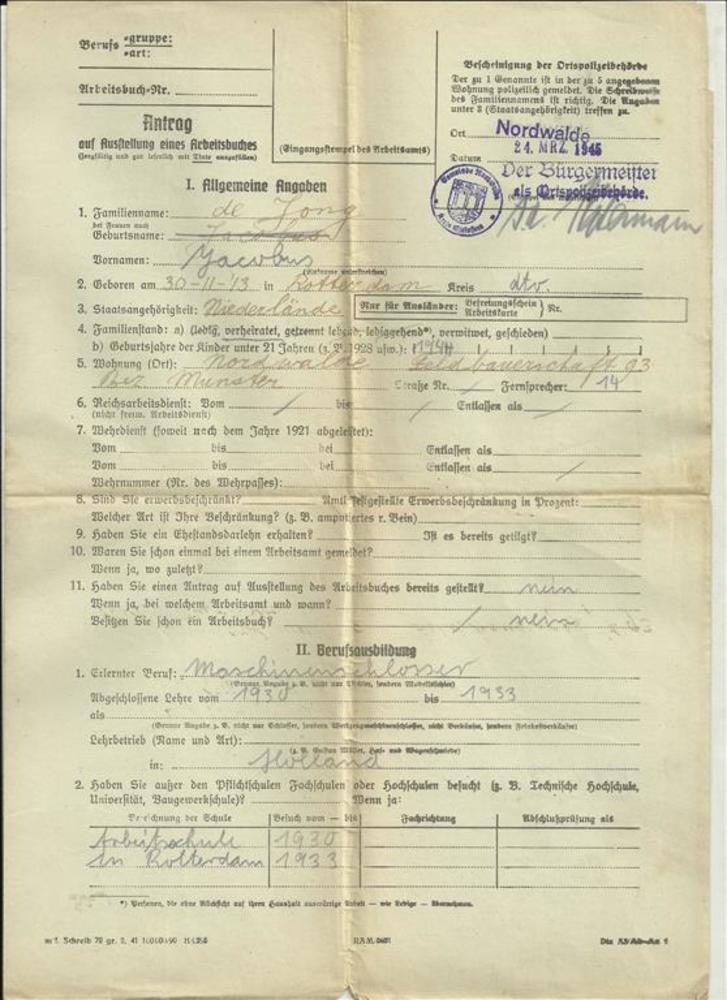 Berufs =gruppe:
=art:
Arbeitsbuch-Nr.
Antrag
auf Ausstellung eines Arbeitsbuches
(Sorgfältig und gut leserlich mit Tinte ausgefüllen)
(Eingangsstempel des Arbeitsamts)
Bescheinigung der Ortspolizeibehörde
Der zu 1 Genannte ist in der zu 5 angegebenen
Wohnung polizeilich gemeldet. Die Schreibweise
des Familiennamens ist richtig. Die Angaben
unter 3 (Staatsangehörigkeit) treffen zu.
Ort Nordwalde
Datum 24. MRZ. 1945
Der Bürgermeister
als Ortspolizeibehörde.
I. Allgemeine Angaben
1. Familienname: de Jong
bei Frauen auch
Geburtsname: Jacobus
Vornamen: Jacobus
(Rufname unterstreichen)
2. Geboren am 30-11-'13 in Rotterdam Kreis dto.
3. Staatsangehörigkeit: Niederlände Nur für Ausländer: Befreiungsschein } Nr.
Arbeitskarte
4. Familienstand: a) (ledig, verheiratet, getrennt lebend, ledigehend*), verwitwet, geschieden)
b) Geburtsjahre der Kinder unter 21 Jahren (z. B. 1928 usw.): 1944
5. Wohnung (Ort): Nordwalde Feldbauerschaft 93
Bez Munster Straße Nr. Fernsprecher: 14
6. Reichsarbeitsdienst: Vom / bis / Entlassen als /
(nicht freiw. Arbeitsdienst)
7. Wehrdienst (soweit nach dem Jahre 1921 abgeleistet):
Vom bis bei Entlassen als
Vom bis bei Entlassen als /
Wehrnummer (Nr. des Wehrpasses):
8. Sind Sie erwerbsbeschränkt? Amtl. festgestellte Erwerbsbeschränkung in Prozent:
Welcher Art ist Ihre Beschränkung? (z. B. amputiertes r. Bein)
9. Haben Sie ein Ehestandsdarlehn erhalten? Ist es bereits getilgt?
10. Waren Sie schon einmal bei einem Arbeitsamt gemeldet?
Wenn ja, wo zuletzt?
11. Haben Sie einen Antrag auf Ausstellung des Arbeitsbuches bereits gestellt? nein
Wenn ja, bei welchem Arbeitsamt und wann?
Besitzen Sie schon ein Arbeitsbuch? / nein
II. Berufsausbildung
1. Erlernter Beruf: Maschinenschlosser
(Genaue Angabe z. B. nicht nur Tischler, sondern Modelltischler)
Abgeschlossene Lehre vom 1930 bis 1933
als
(Genaue Angabe z. B. nicht nur Schlosser, sondern Werkzeugmaschinenschlosser, nicht Verkäufer, sondern Feinkostverkäufer)
Lehrbetrieb (Name und Art):
(z. B. Gustav Müller, Huf- und Wagenschmiede)
in: Holland
2. Haben Sie außer den Pflichtschulen Fachschulen oder Hochschulen besucht (z. B. Technische Hochschule,
Universität, Baugewerkschule)? Wenn ja:
Bezeichnung der Schule Besuch vom — bis Fachrichtung Abschlußprüfung als
Arbeitschule 1930
in Rotterdam 1933
*) Personen, die ohne Rücksicht auf ihren Haushalt auswärtige Arbeit — wie Ledige — übernehmen.
RAM. 0401